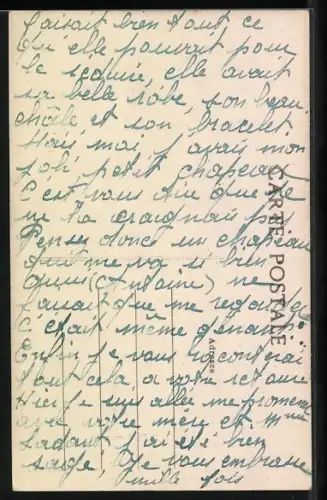 faisait bien tout ce
qu'elle pouvait pour
le séduire, elle avait
sa belle robe, son beau
châle et son bracelet.
Mais moi j'avais mon
joli petit chapeau
C'est vous dire que je
ne la craignais pas
Pensez donc un chapeau
qui me va si bien
(Antoine) ne
faisait que me regarder
C'était même gênant.
Enfin je vous raconterai
tout cela, a votre retour
Hier je suis allée me promener
avec votre mère et Mme
j'ai été bien
sage, je vous embrasse
mille fois
CARTE POSTALE
Adresse